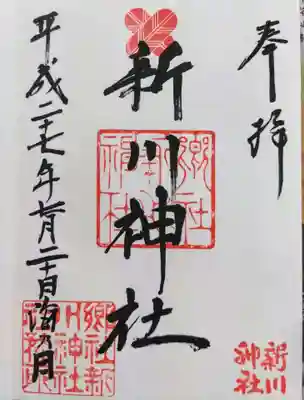 奉拝
新川神社
郷社
新川
神社
平成二十七年七月二十日海乃日
郷社新
川神社
新川
神社